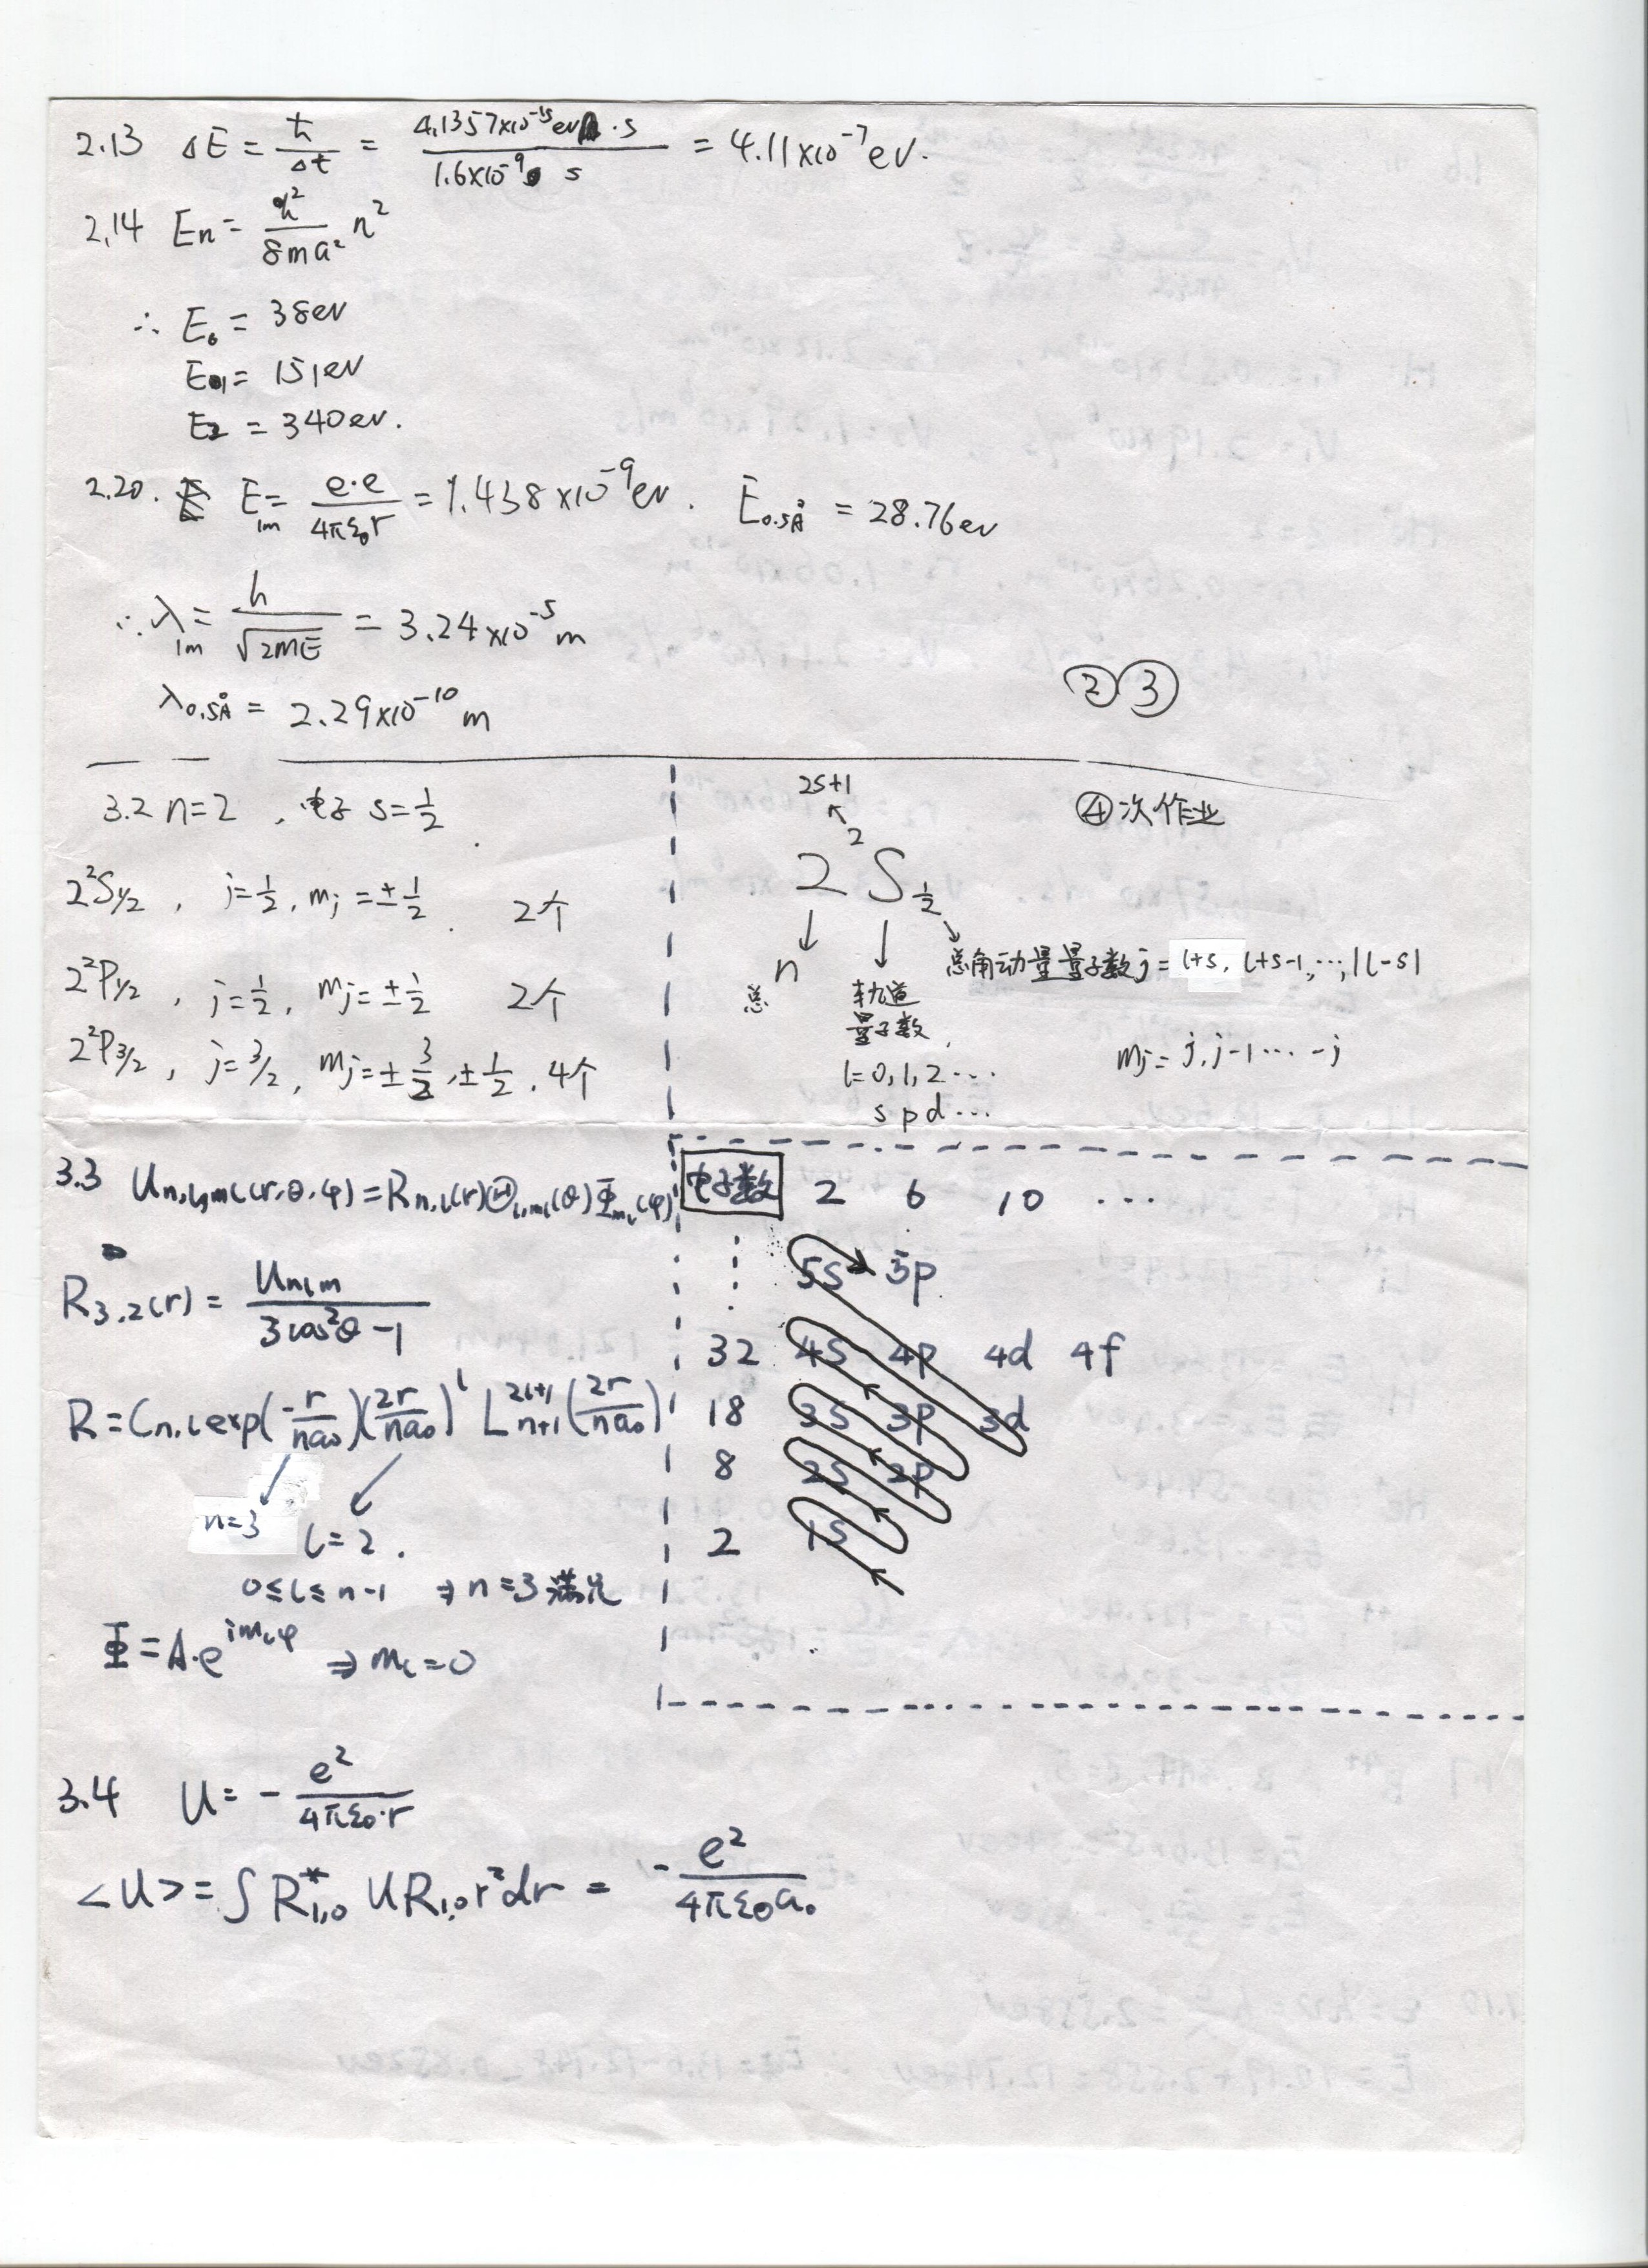 2.13 ΔE = ħ/Δt = 4.1357×10⁻¹⁵ev·s / 1.6×10⁻⁹ s = 4.11×10⁻⁷ev.
2.14 En = h²/8ma² n²
∴ E₀ = 38ev
E₁ = 151ev
E₂ = 340ev.
2.20. E1m = e·e/4πε₀r = 1.438×10⁻⁹ev. E0.5Å = 28.76ev
∴ λ1m = h/√2mE = 3.24×10⁻⁵m
λ0.5Å = 2.29×10⁻¹⁰m
② ③
④次作业
3.2 n=2 , 电子 s=1/2
2²S1/2 , j=1/2, mj=±1/2. 2个
2²P1/2 , j=1/2, mj=±1/2 2个
2²P3/2 , j=3/2, mj=±3/2, ±1/2. 4个
2s+1
↖
2²S1/2
↓ ↓ ↘
总 n
轨道
量子数,
l=0,1,2…
s p d…
总角动量量子数j=l+s, l+s-1,…,|l-s|
mj=j,j-1…-j
3.3 Un,l,ml(r,θ,φ)=Rn,l(r)Θl,ml(θ)Φml(φ)
R3,2(r) = Unlm / 3cos²θ-1
R=Cn,l exp(-r/na₀)(2r/na₀)ˡ L²ˡ⁺¹n+1(2r/na₀)
n=3 l=2.
0≤l≤n-1 ⇒ n=3
Φ=A·e^imlφ ⇒ ml=0
电子数 2 6 10 …
⋮ 5s 5p
32 4s 4p 4d 4f
18 3s 3p 3d
8 2s 2p
2 1s
3.4 U = - e²/4πε₀·r
<U>=∫R*1,0 U R1,0 r²dr = - e²/4πε₀a₀